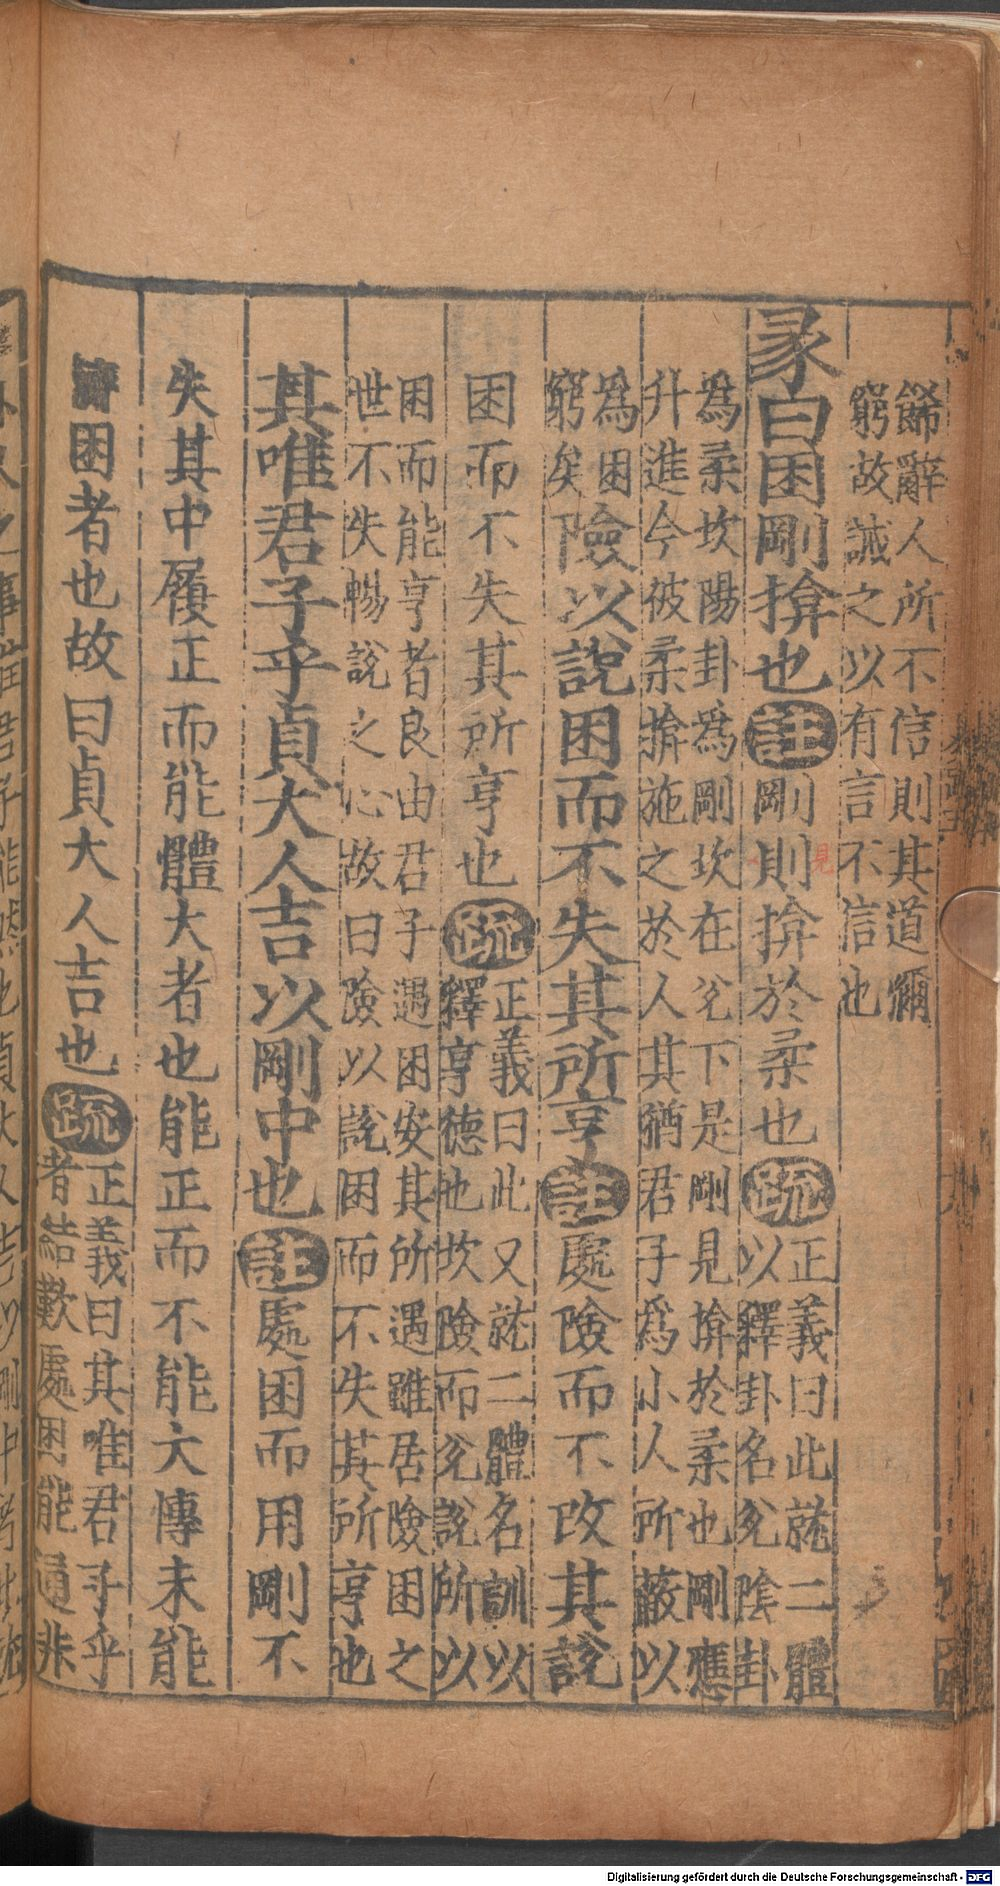 餙辭人所不信則其道彌
窮故誡之以有言不信也
彖曰困剛揜也註剛則揜於柔也疏正義曰此就二體
以釋卦名兊陰卦
爲柔坎陽卦爲剛坎在兊下是剛見揜於柔也剛應
升進今彼柔揜施之於人其猶君子爲小人所蔽以
爲困
窮矣險以說困而不失其所亨註處險而不改其說
困而不失其所亨也疏正義曰此又就二體名訓以
釋亨德也坎險而兊說所以
困而能亨者良由君子遇困安其所遇雖居險困之
世不失暢說之心故曰險以說困而不失其所亨也
其唯君子乎貞大人吉以剛中也註處困而用剛不
失其中履正而能體大者也能正而不能大博未能
濟困者也故曰貞大人吉也疏正義曰其唯君子乎
者結歎處困能通非
見
Digitalisierung gefördert durch die Deutsche Forschungsgemeinschaft - DFG